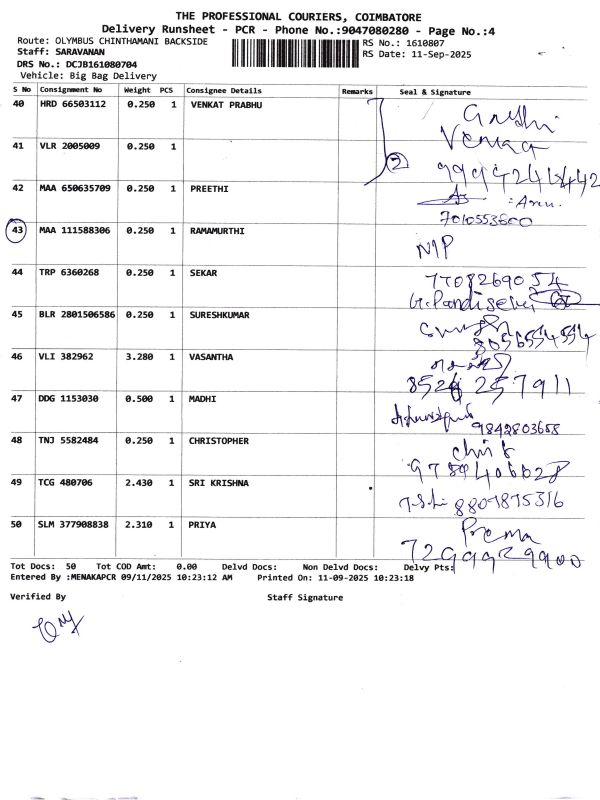 THE PROFESSIONAL COURIERS, COIMBATORE
Delivery Runsheet - PCR - Phone No.:9047080280 - Page No.:4
Route: OLYMBUS CHINTHAMANI BACKSIDE RS No.: 1610807
Staff: SARAVANAN RS Date: 11-Sep-2025
DRS No.: DCJB161080704
Vehicle: Big Bag Delivery
S No Consignment No Weight PCS Consignee Details Remarks Seal & Signature
40 HRD 66503112 0.250 1 VENKAT PRABHU
41 VLR 2005009 0.250 1
2
42 MAA 650635709 0.250 1 PREETHI
7010553600
43 MAA 111588306 0.250 1 RAMAMURTHI
NIP
44 TRP 6360268 0.250 1 SEKAR
7708269054
G.Pandiselvi
45 BLR 2801506586 0.250 1 SURESHKUMAR
8056554554
46 VLI 382962 3.280 1 VASANTHA
8526257911
47 DDG 1153030 0.500 1 MADHI
9842803658
48 TNJ 5582484 0.250 1 CHRISTOPHER
49 TCG 480706 2.430 1 SRI KRISHNA
50 SLM 377908838 2.310 1 PRIYA
Prema
7299929900
Tot Docs: 50 Tot COD Amt: 0.00 Delvd Docs: Non Delvd Docs: Delvy Pts:
Entered By :MENAKAPCR 09/11/2025 10:23:12 AM Printed On: 11-09-2025 10:23:18
Verified By Staff Signature